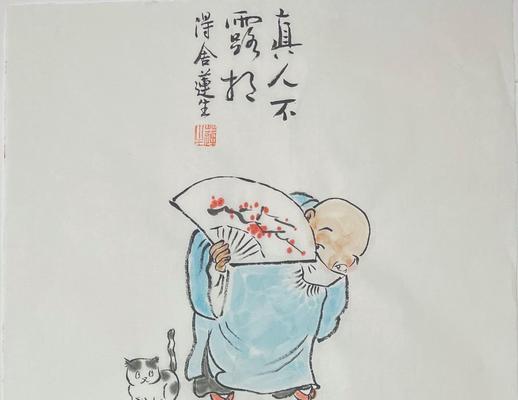 真人不
露相
得舍蓮生